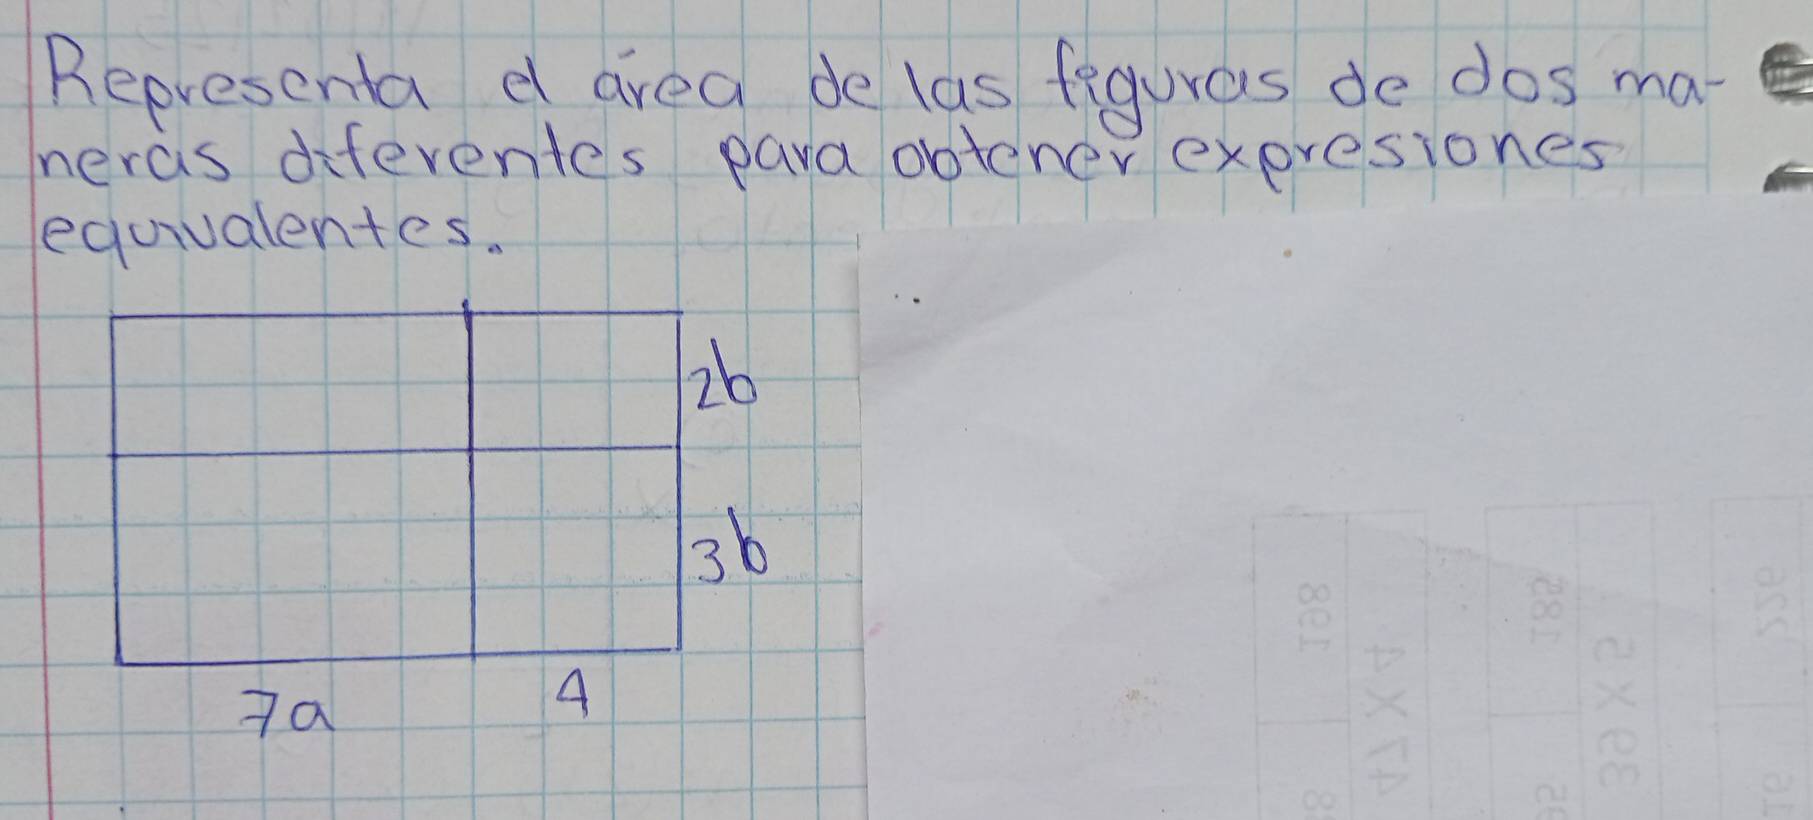 Representa el área de las figuras de dos ma-
neras diferentes para obtener expresiones
equivalentes.
2b
3b
7a
4
198
47 X 4
188
39 X 5
226